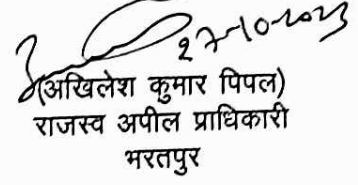 27-10-2023
(अखिलेश कुमार पिपल)
राजस्व अपील प्राधिकारी
भरतपुर